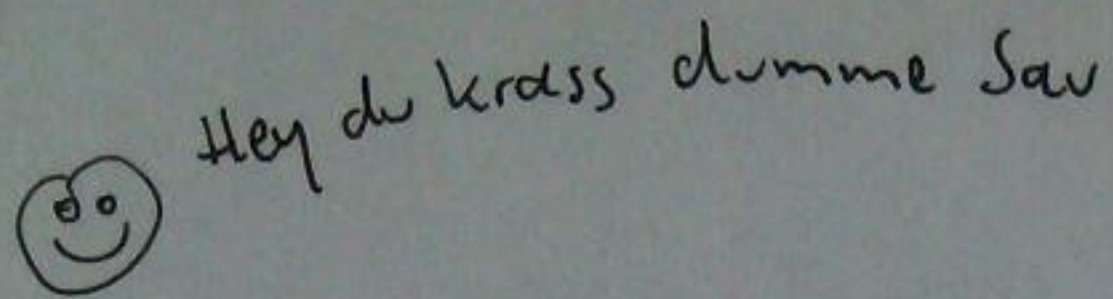 Hey du krass dumme Sau